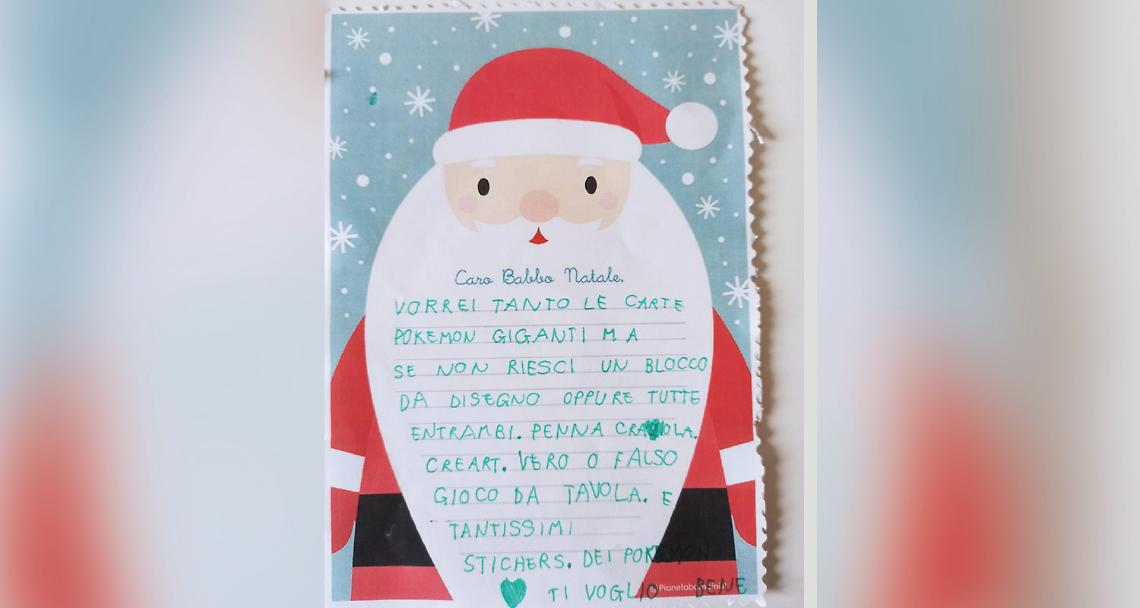 Caro Babbo Natale,
VORREI TANTO LE CARTE
POKEMON GIGANTI MA
SE NON RIESCI UN BLOCCO
DA DISEGNO OPPURE TUTTE
ENTRAMBI. PENNA CRAYOLA.
CREART. VERO O FALSO
GIOCO DA TAVOLA. E
TANTISSIMI
STICHERS. DEI POKEMON
TI VOGLIO BENE